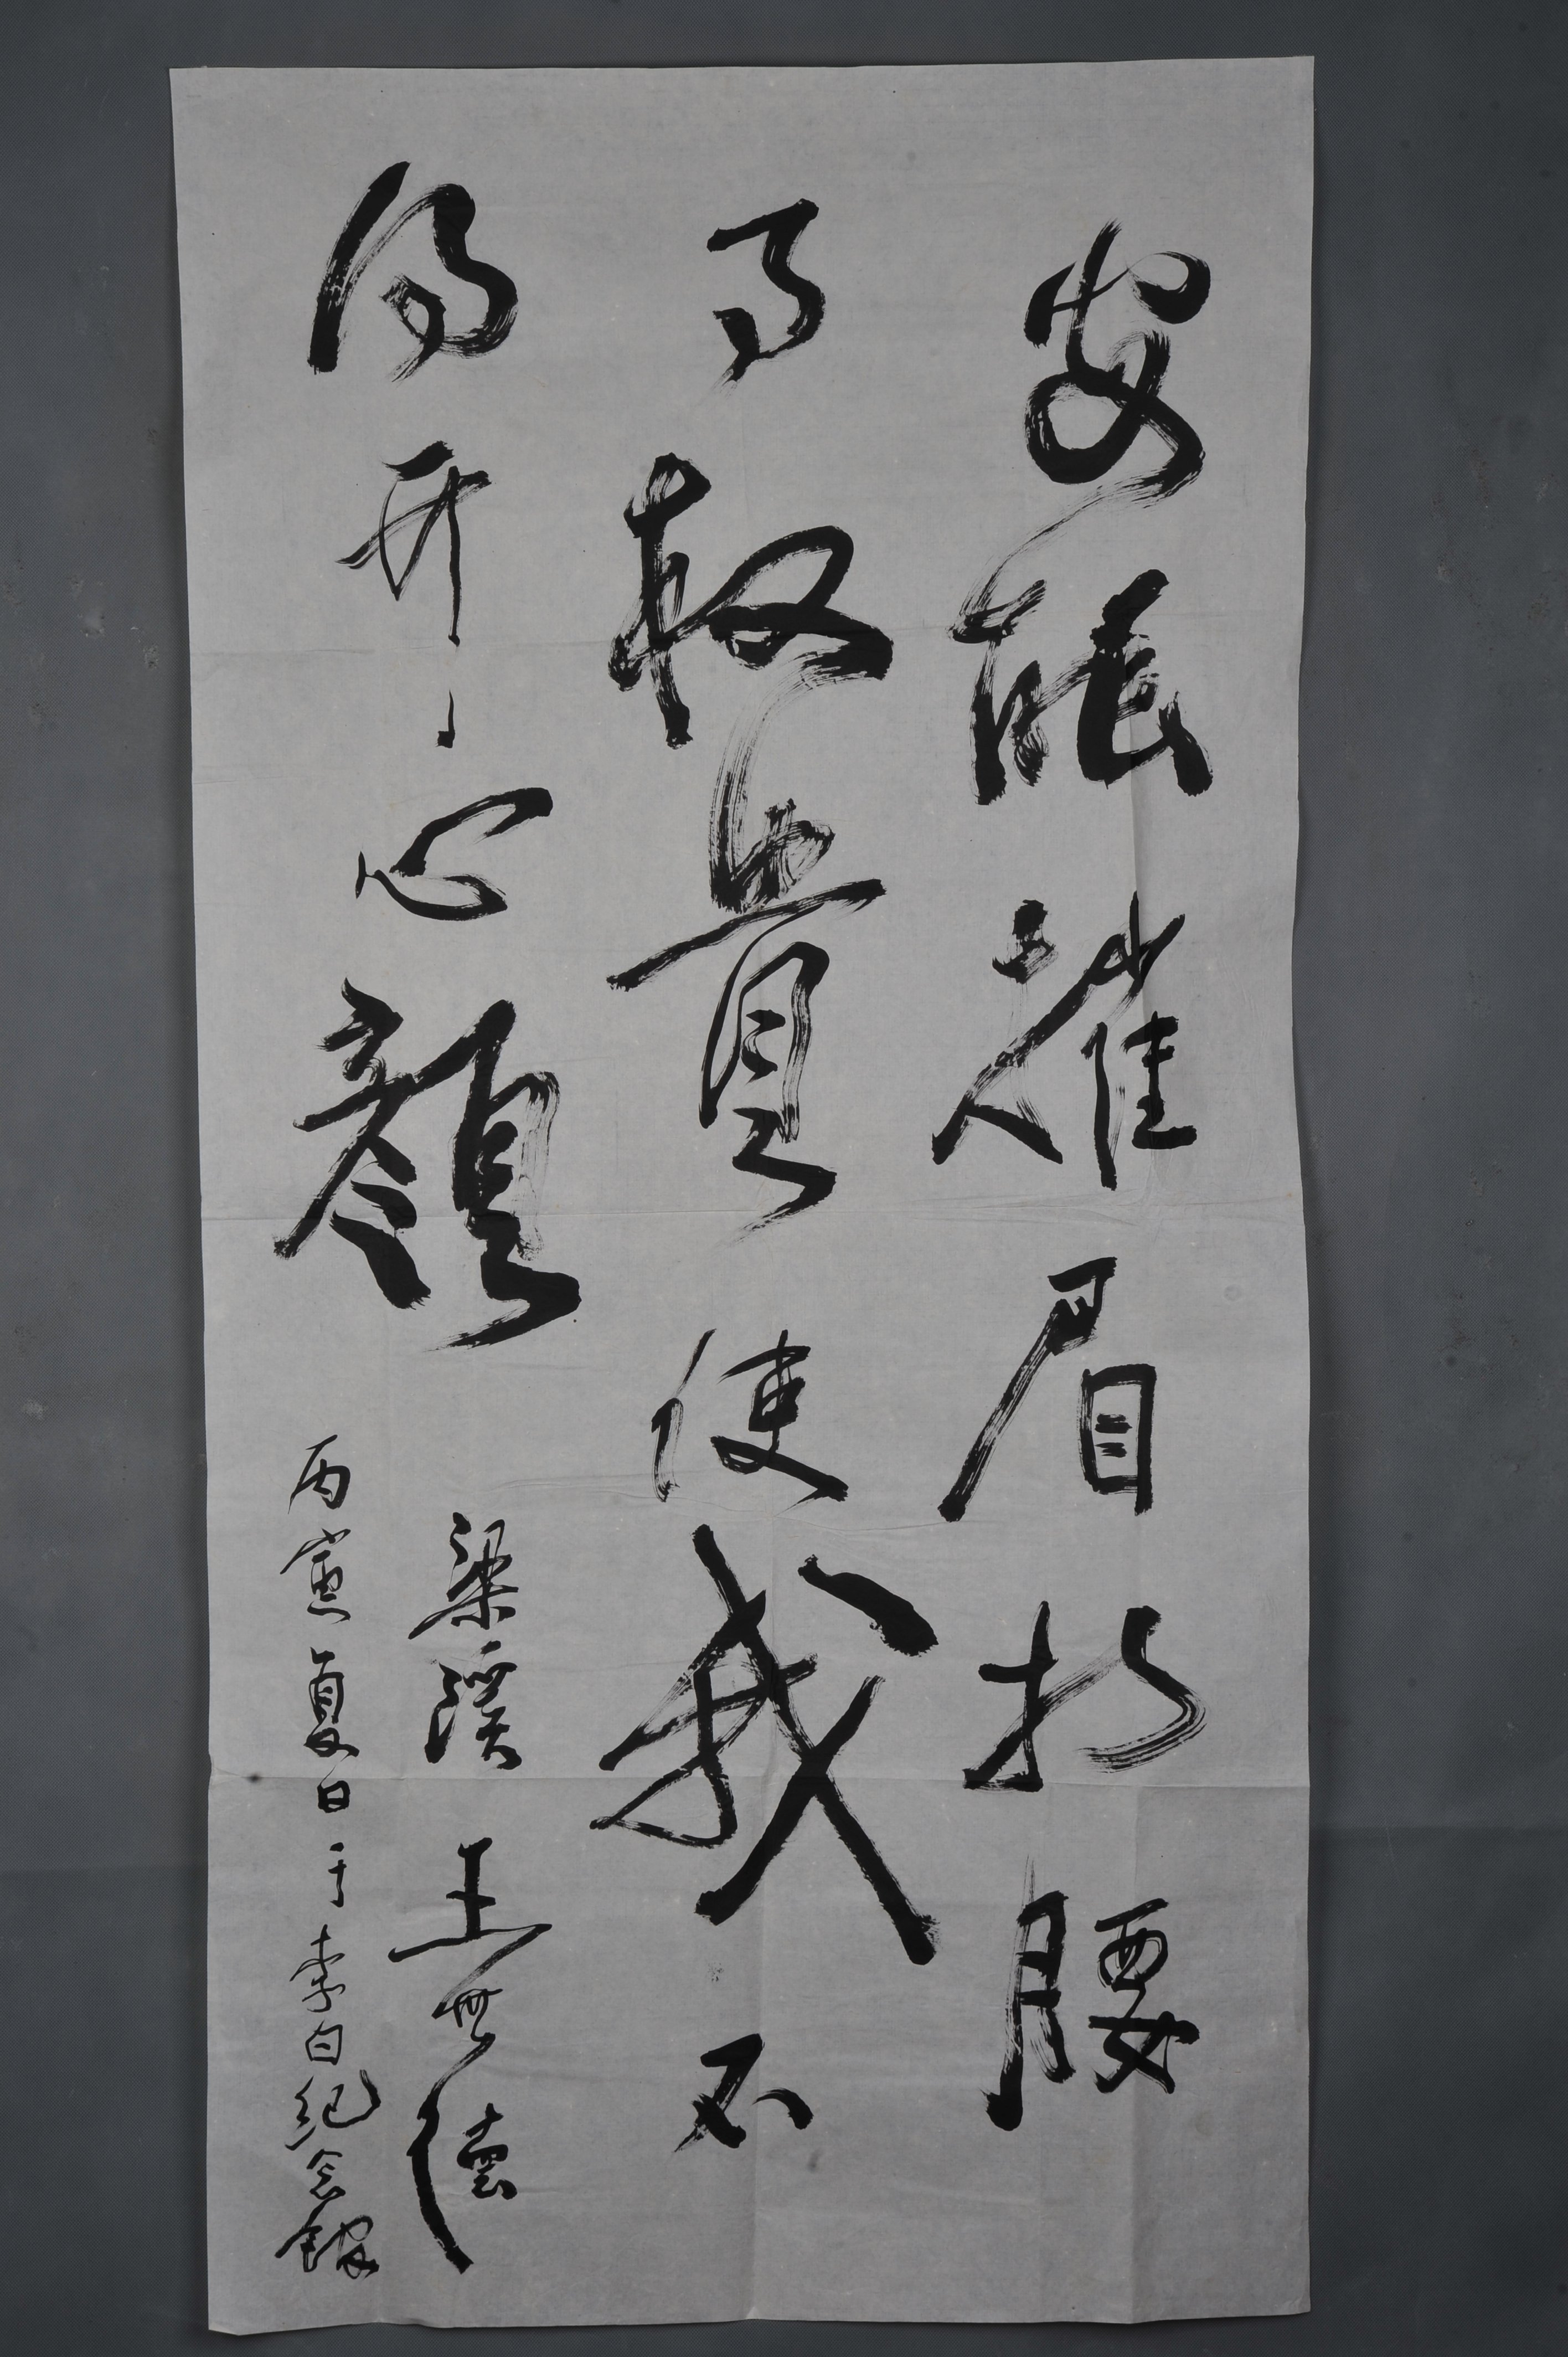 安能摧眉折腰
事权貴使我不
得开心顏
梁溪王德
丙寅夏日于李白纪念館